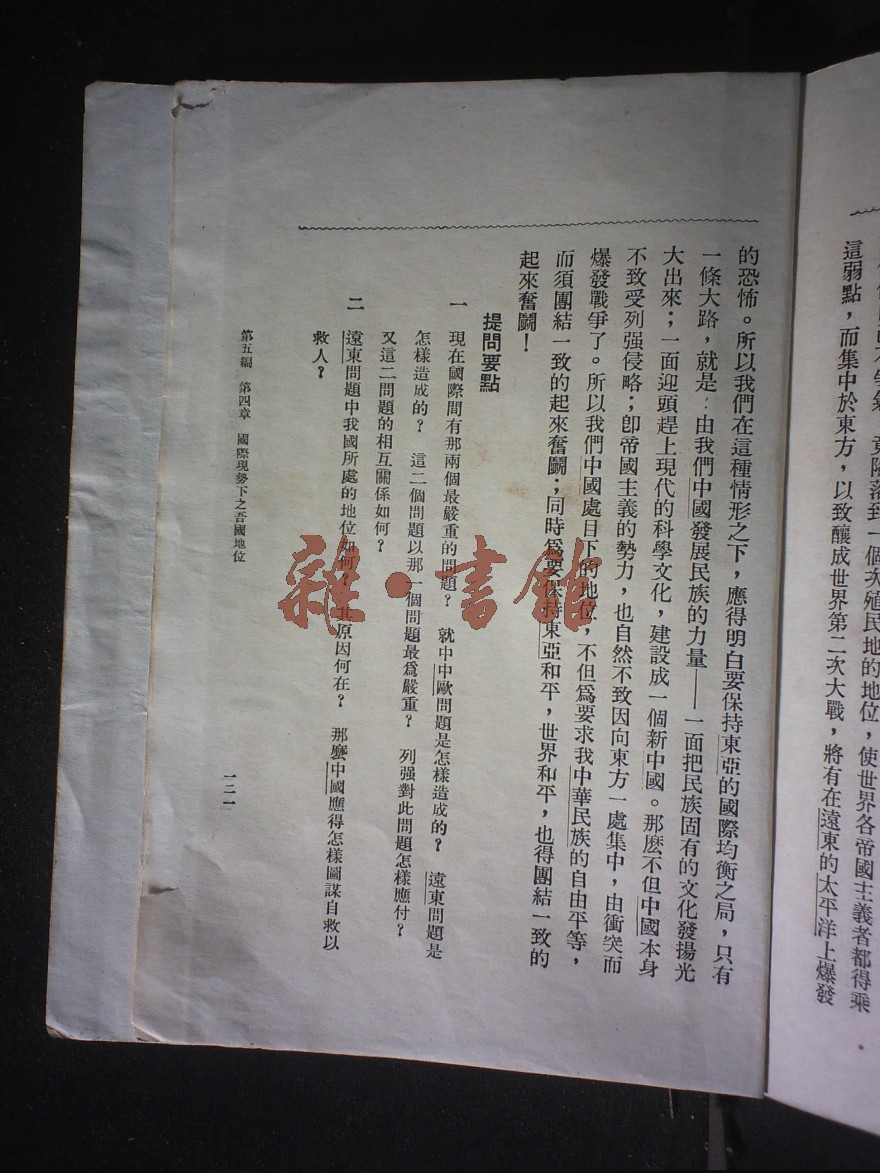 這弱點，而集中於東方，以致釀成世界第二次大戰，將有在遠東的太平洋上爆發
的恐怖。所以我們在這種情形之下，應得明白要保持東亞的國際均衡之局，只有
一條大路，就是：由我們中國發展民族的力量——一面把民族固有的文化發揚光
大出來；一面迎頭趕上現代的科學文化，建設成一個新中國。那麽不但中國本身
不致受列强侵略；卽帝國主義的勢力，也自然不致因向東方一處集中，由衝突而
爆發戰爭了。所以我們中國處目下的地位，不但爲要求我中華民族的自由平等，
而須團結一致的起來奮鬭；同時爲要保持東亞和平，世界和平，也得團結一致的
起來奮鬭！
提問要點
一 現在國際間有那兩個最嚴重的問題？ 就中中歐問題是怎樣造成的？ 遠東問題是
怎樣造成的？ 這二個問題以那一個問題最爲嚴重？ 列强對此問題怎樣應付？
又這二問題的相互關係如何？
二 遠東問題中我國所處的地位如何？ 其原因何在？ 那麽中國應得怎樣圖謀自救以
救人？
第五編 第四章 國際現勢下之吾國地位
一二一
雜·書館